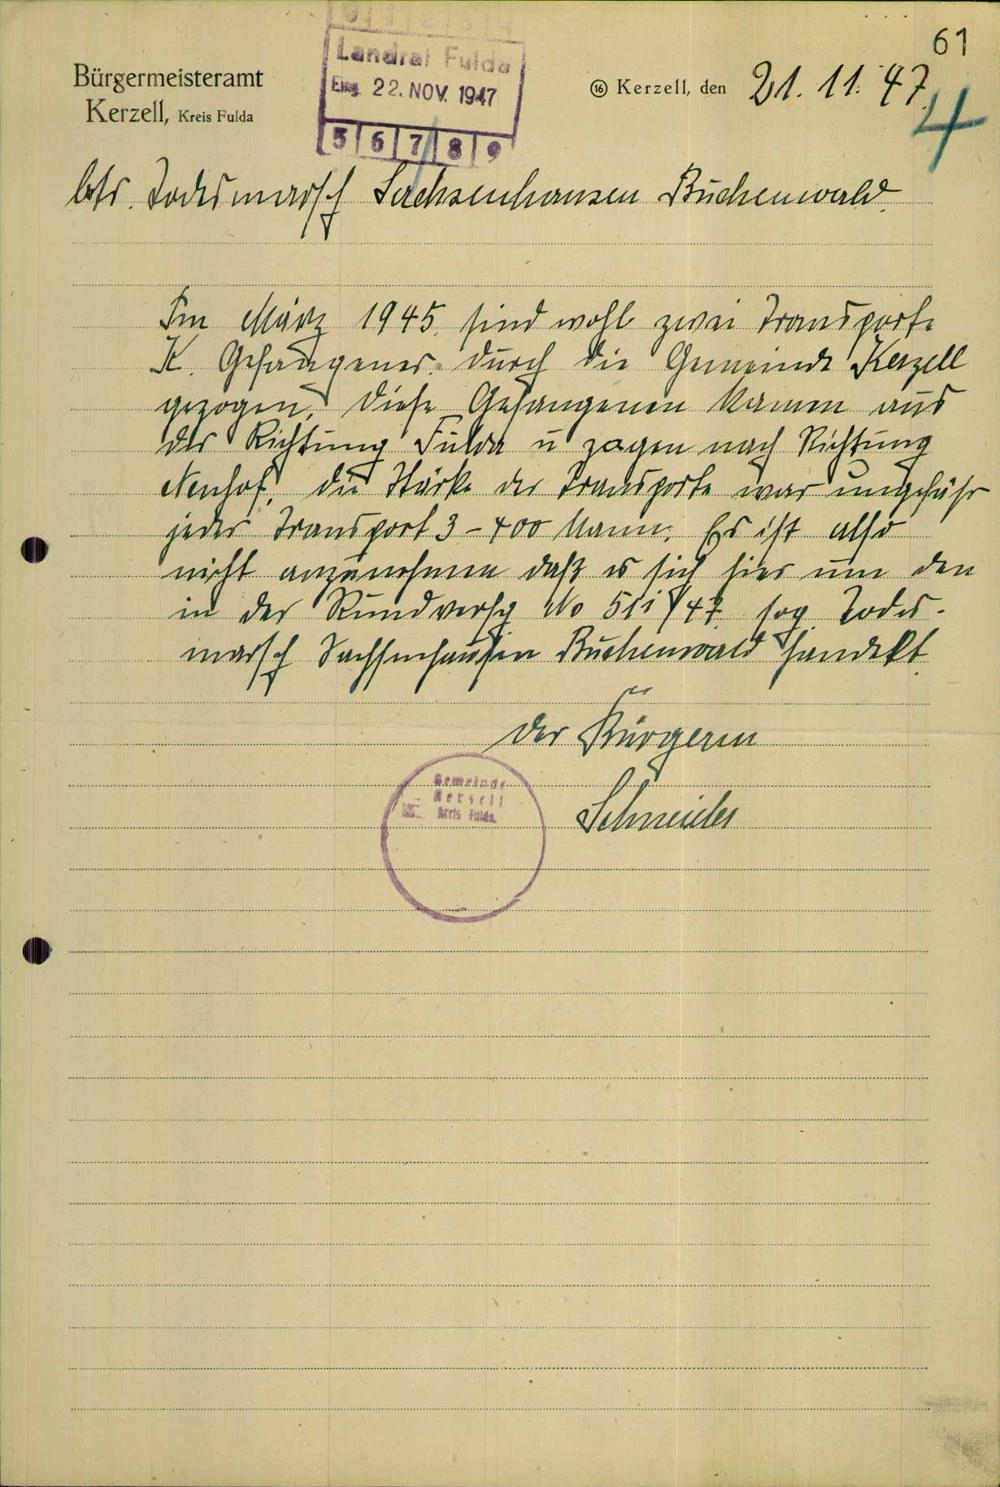 61
Bürgermeisteramt
Kerzell, Kreis Fulda
Landrat Fulda
Eing. 22. NOV. 1947
5 6 7 8 9
⑯ Kerzell, den 21. 11. 47.
4
betr. Todesmarsch Sachsenhausen Buchenwald.
Im März 1945 sind wohl zwei Transporte
K. Gefangener durch die Gemeinde Kerzell
gezogen. Diese Gefangenen kamen aus
der Richtung Fulda u zogen nach Richtung
Neuhof, die Stärke der Transporte war ungefähr
jeder Transport 3 - 400 Mann. Es ist also
nicht anzunehmen daß es sich hier um den
in der Rundverfg No 511/47 sog. Todes-
marsch Sachsenhausen Buchenwald handelt.
Der Bürgerm
Schneider
Gemeinde
Kerzell
Kreis Fulda.